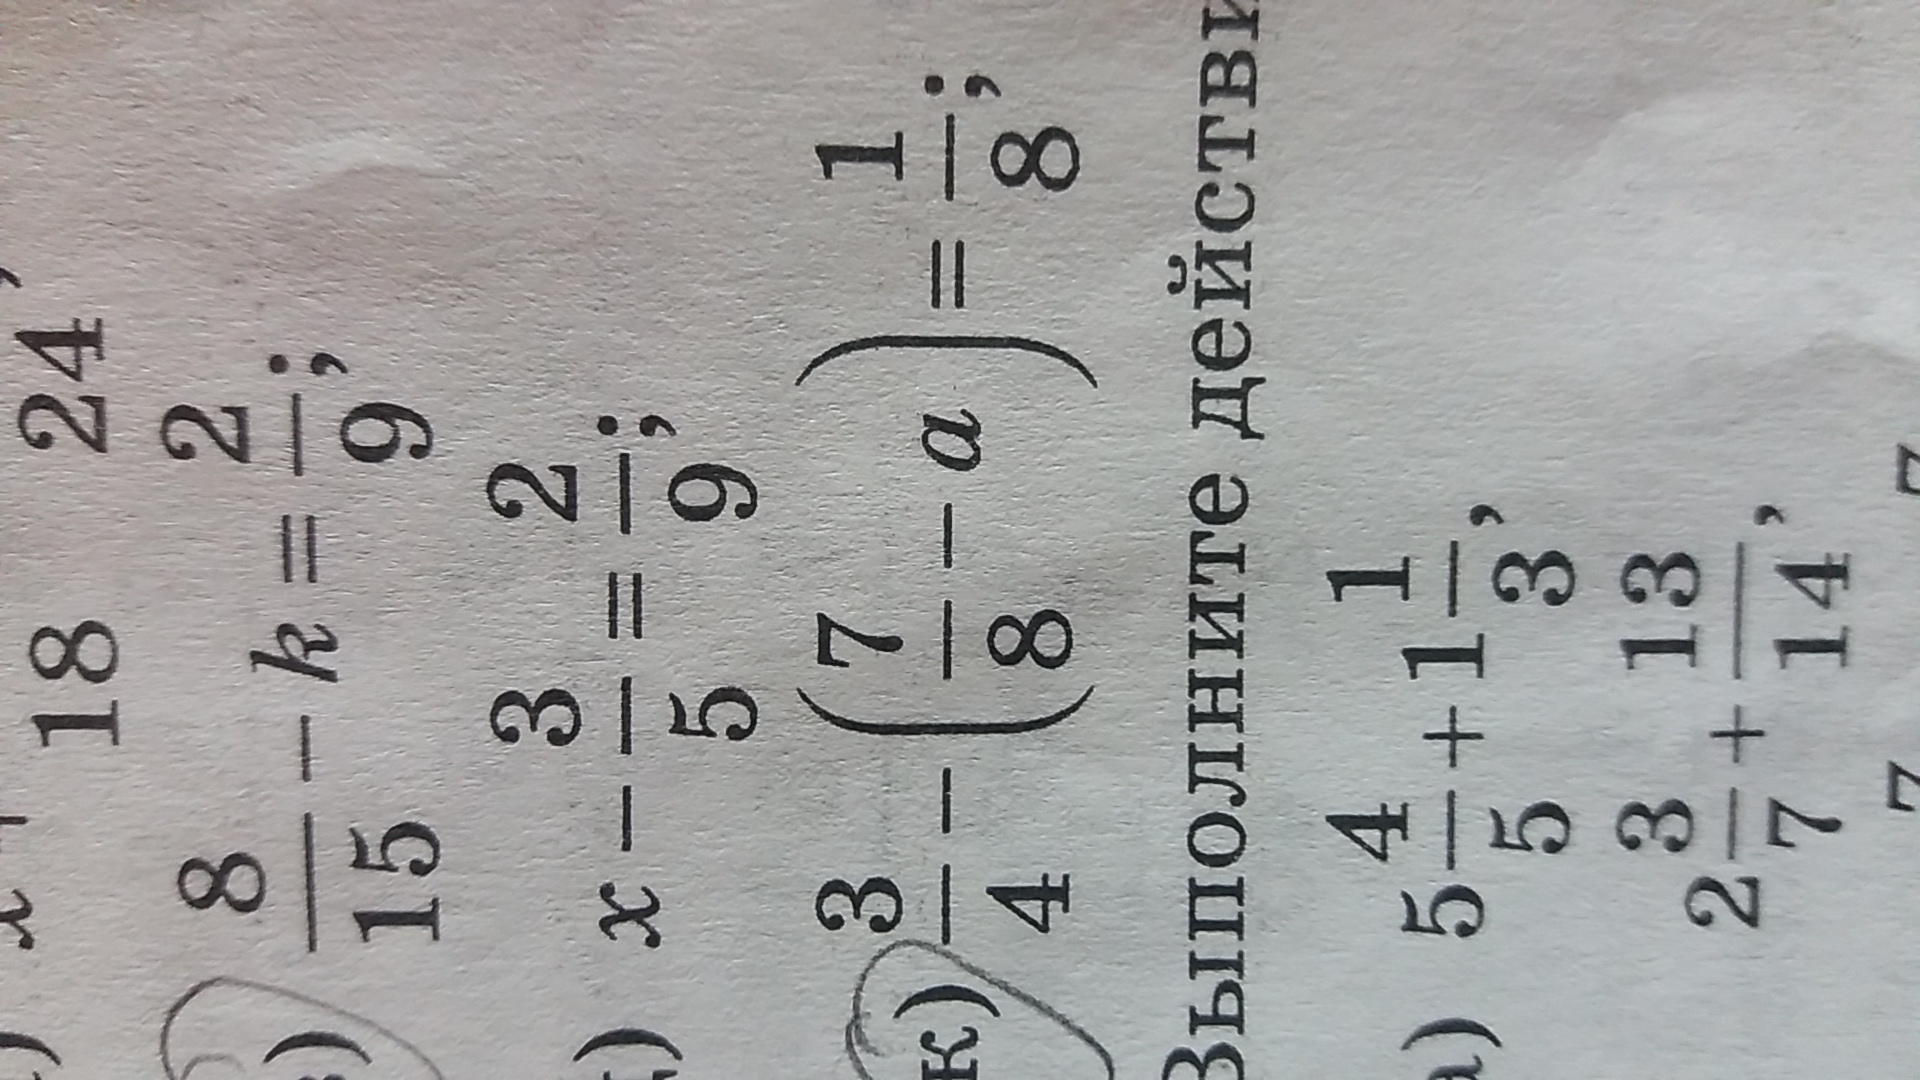 18 24
в) 8/15 − k = 2/9;
x − 3/5 = 2/9;
ж) 3/4 − (7/8 − a) = 1/8;
Выполните действи
а) 5 4/5 + 1 1/3,
2 3/7 + 13/14,
7 7